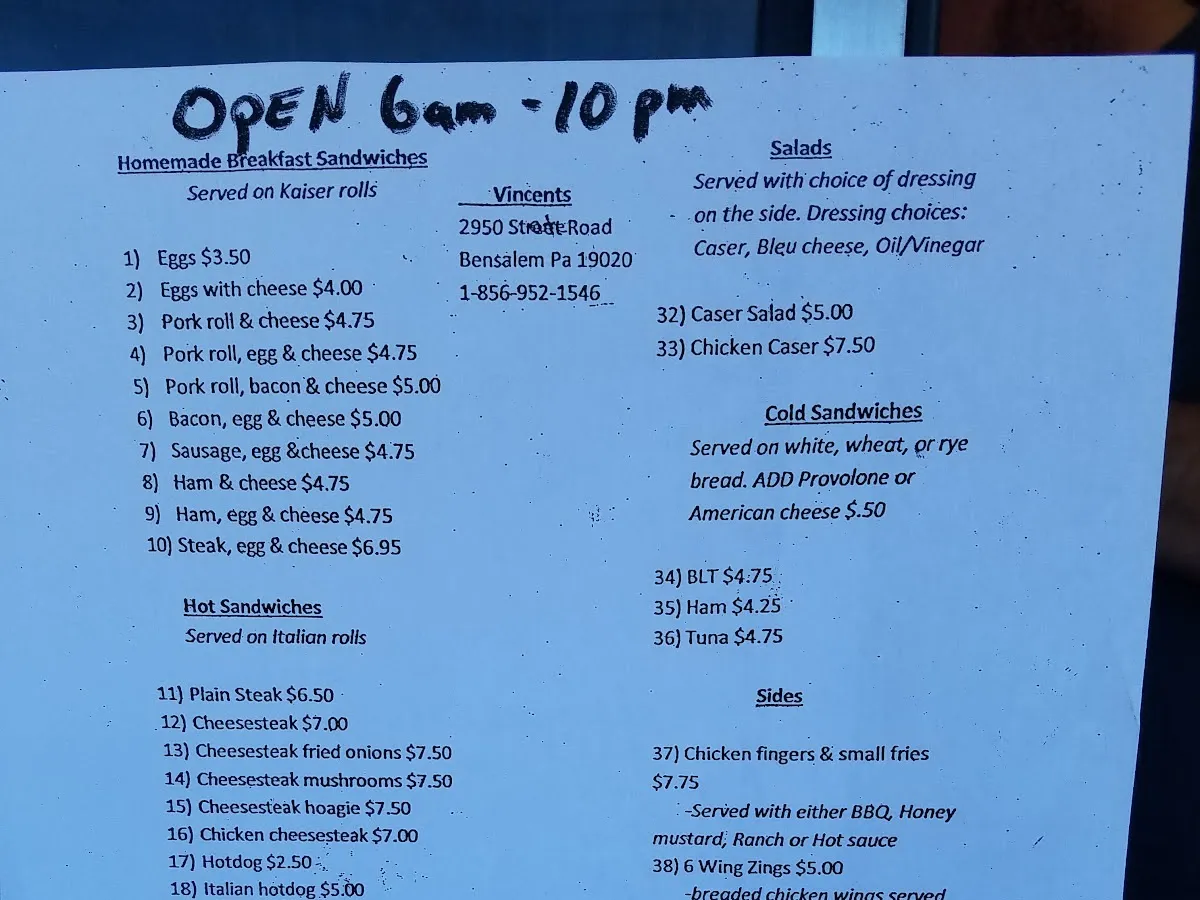 OPEN 6am - 10 pm
Homemade Breakfast Sandwiches
Served on Kaiser rolls
1) Eggs $3.50
2) Eggs with cheese $4.00
3) Pork roll & cheese $4.75
4) Pork roll, egg & cheese $4.75
5) Pork roll, bacon & cheese $5.00
6) Bacon, egg & cheese $5.00
7) Sausage, egg &cheese $4.75
8) Ham & cheese $4.75
9) Ham, egg & cheese $4.75
10) Steak, egg & cheese $6.95
Hot Sandwiches
Served on Italian rolls
11) Plain Steak $6.50
12) Cheesesteak $7.00
13) Cheesesteak fried onions $7.50
14) Cheesesteak mushrooms $7.50
15) Cheesesteak hoagie $7.50
16) Chicken cheesesteak $7.00
17) Hotdog $2.50
18) Italian hotdog $5.00
Vincents
2950 Road
Bensalem Pa 19020
1-856-952-1546
Salads
Served with choice of dressing
on the side. Dressing choices:
Caser, Bleu cheese, Oil/Vinegar
32) Caser Salad $5.00
33) Chicken Caser $7.50
Cold Sandwiches
Served on white, wheat, or rye
bread. ADD Provolone or
American cheese $.50
34) BLT $4.75
35) Ham $4.25
36) Tuna $4.75
Sides
37) Chicken fingers & small fries
$7.75
-Served with either BBQ, Honey
mustard, Ranch or Hot sauce
38) 6 Wing Zings $5.00
-breaded chicken wings served